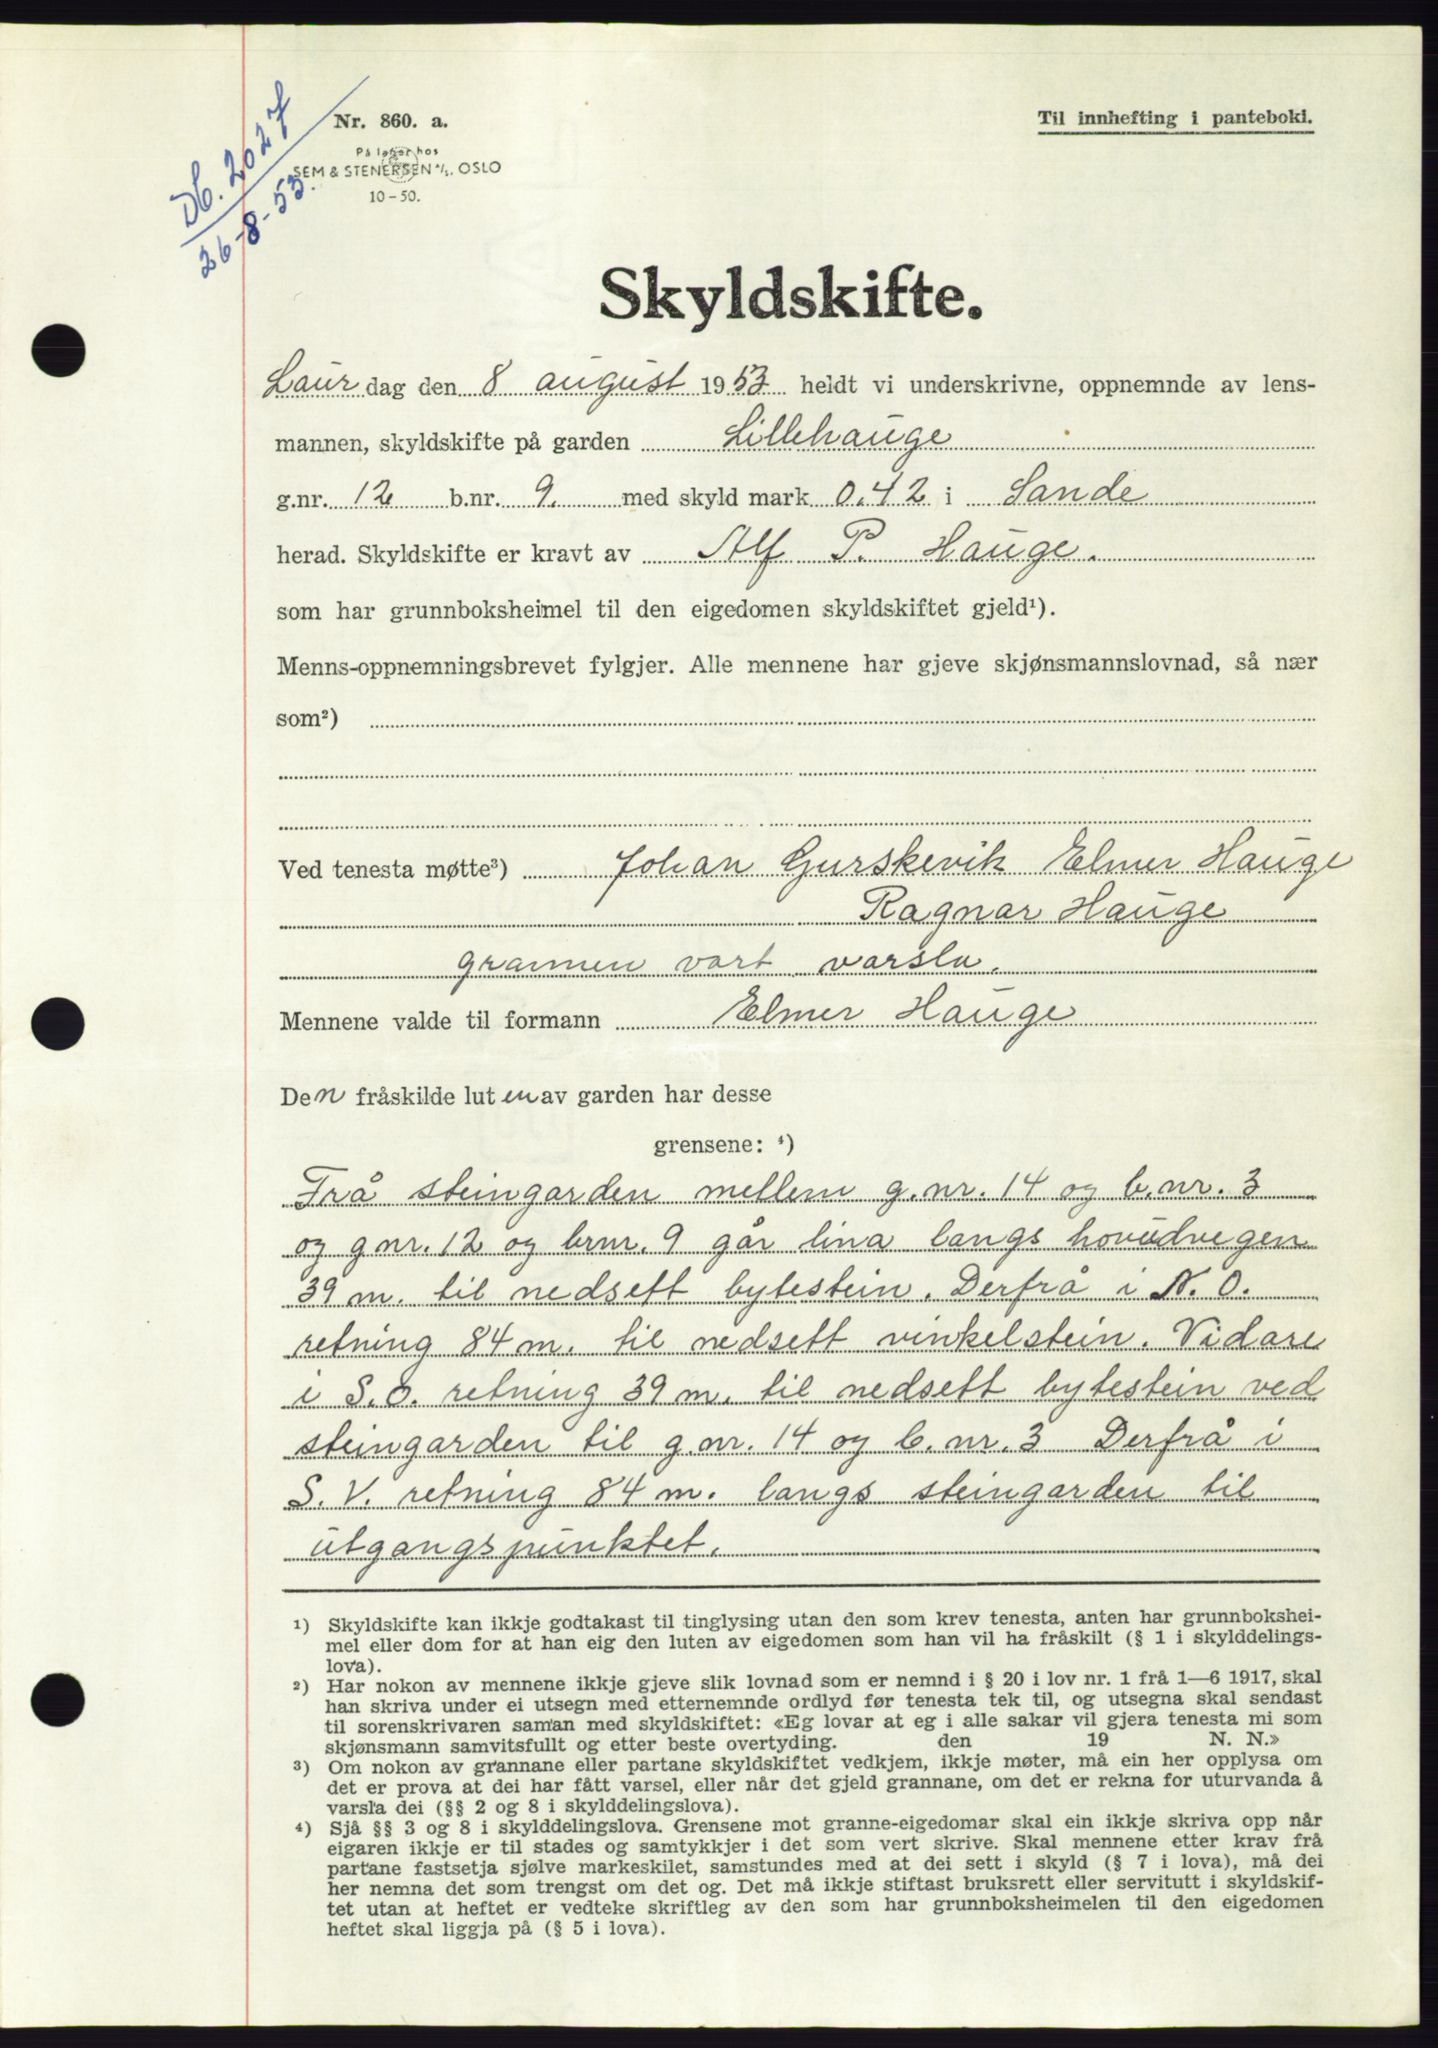 Db. 2027
26-8-53.
Nr. 860. a.
På lager hos
SEM & STENERSEN A/S, OSLO
10-50.
Til innhefting i panteboki.
Skyldskifte.
Laur dag den 8 august 1953 heldt vi underskrivne, oppnemnde av lens-
mannen, skyldskifte på garden Lillehauge
g.nr. 12 b.nr. 9. med skyld mark 0.42 i Sande
herad. Skyldskifte er kravt av Alf P. Hauge.
som har grunnboksheimel til den eigedomen skyldskiftet gjeld¹).
Menns-oppnemningsbrevet fylgjer. Alle mennene har gjeve skjønsmannslovnad, så nær
som²)
Ved tenesta møtte³) Johan Gurskevik Elmer Hauge
Ragnar Hauge
grannen vart varsla.
Mennene valde til formann Elmer Hauge
Den fråskilde luten av garden har desse
grensene: ⁴)
Frå steingarden mellem g.nr. 14 og b.nr. 3
og g nr. 12 og brnr. 9 går lina langs hovudvegen
39 m. til nedsett bytestein. Derfrå i N.O.
retning 84 m. til nedsett vinkelstein. Vidare
i S.O. retning 39 m. til nedsett bytestein ved
steingarden til g.nr. 14 og b.nr. 3 Derfrå i
S.V. retning 84 m. langs steingarden til
utgangspunktet.
¹) Skyldskifte kan ikkje godtakast til tinglysing utan den som krev tenesta, anten har grunnbokshei-
mel eller dom for at han eig den luten av eigedomen som han vil ha fråskilt (§ 1 i skylddelings-
lova).
²) Har nokon av mennene ikkje gjeve slik lovnad som er nemnd i § 20 i lov nr. 1 frå 1—6 1917, skal
han skriva under ei utsegn med etternemnde ordlyd før tenesta tek til, og utsegna skal sendast
til sorenskrivaren saman med skyldskiftet: «Eg lovar at eg i alle sakar vil gjera tenesta mi som
skjønsmann samvitsfullt og etter beste overtyding. den 19 N. N.»
³) Om nokon av grannane eller partane skyldskiftet vedkjem, ikkje møter, må ein her opplysa om
det er prova at dei har fått varsel, eller når det gjeld grannane, om det er rekna for uturvanda å
varsla dei (§§ 2 og 8 i skylddelingslova).
⁴) Sjå §§ 3 og 8 i skylddelingslova. Grensene mot granne-eigedomar skal ein ikkje skriva opp når
eigaren ikkje er til stades og samtykkjer i det som vert skrive. Skal mennene etter krav frå
partane fastsetja sjølve markeskilet, samstundes med at dei sett i skyld (§ 7 i lova), må dei
her nemna det som trengst om det og. Det må ikkje stiftast bruksrett eller servitutt i skyldskif-
tet utan at heftet er vedteke skriftleg av den som har grunnboksheimelen til den eigedomen
heftet skal liggja på (§ 5 i lova).